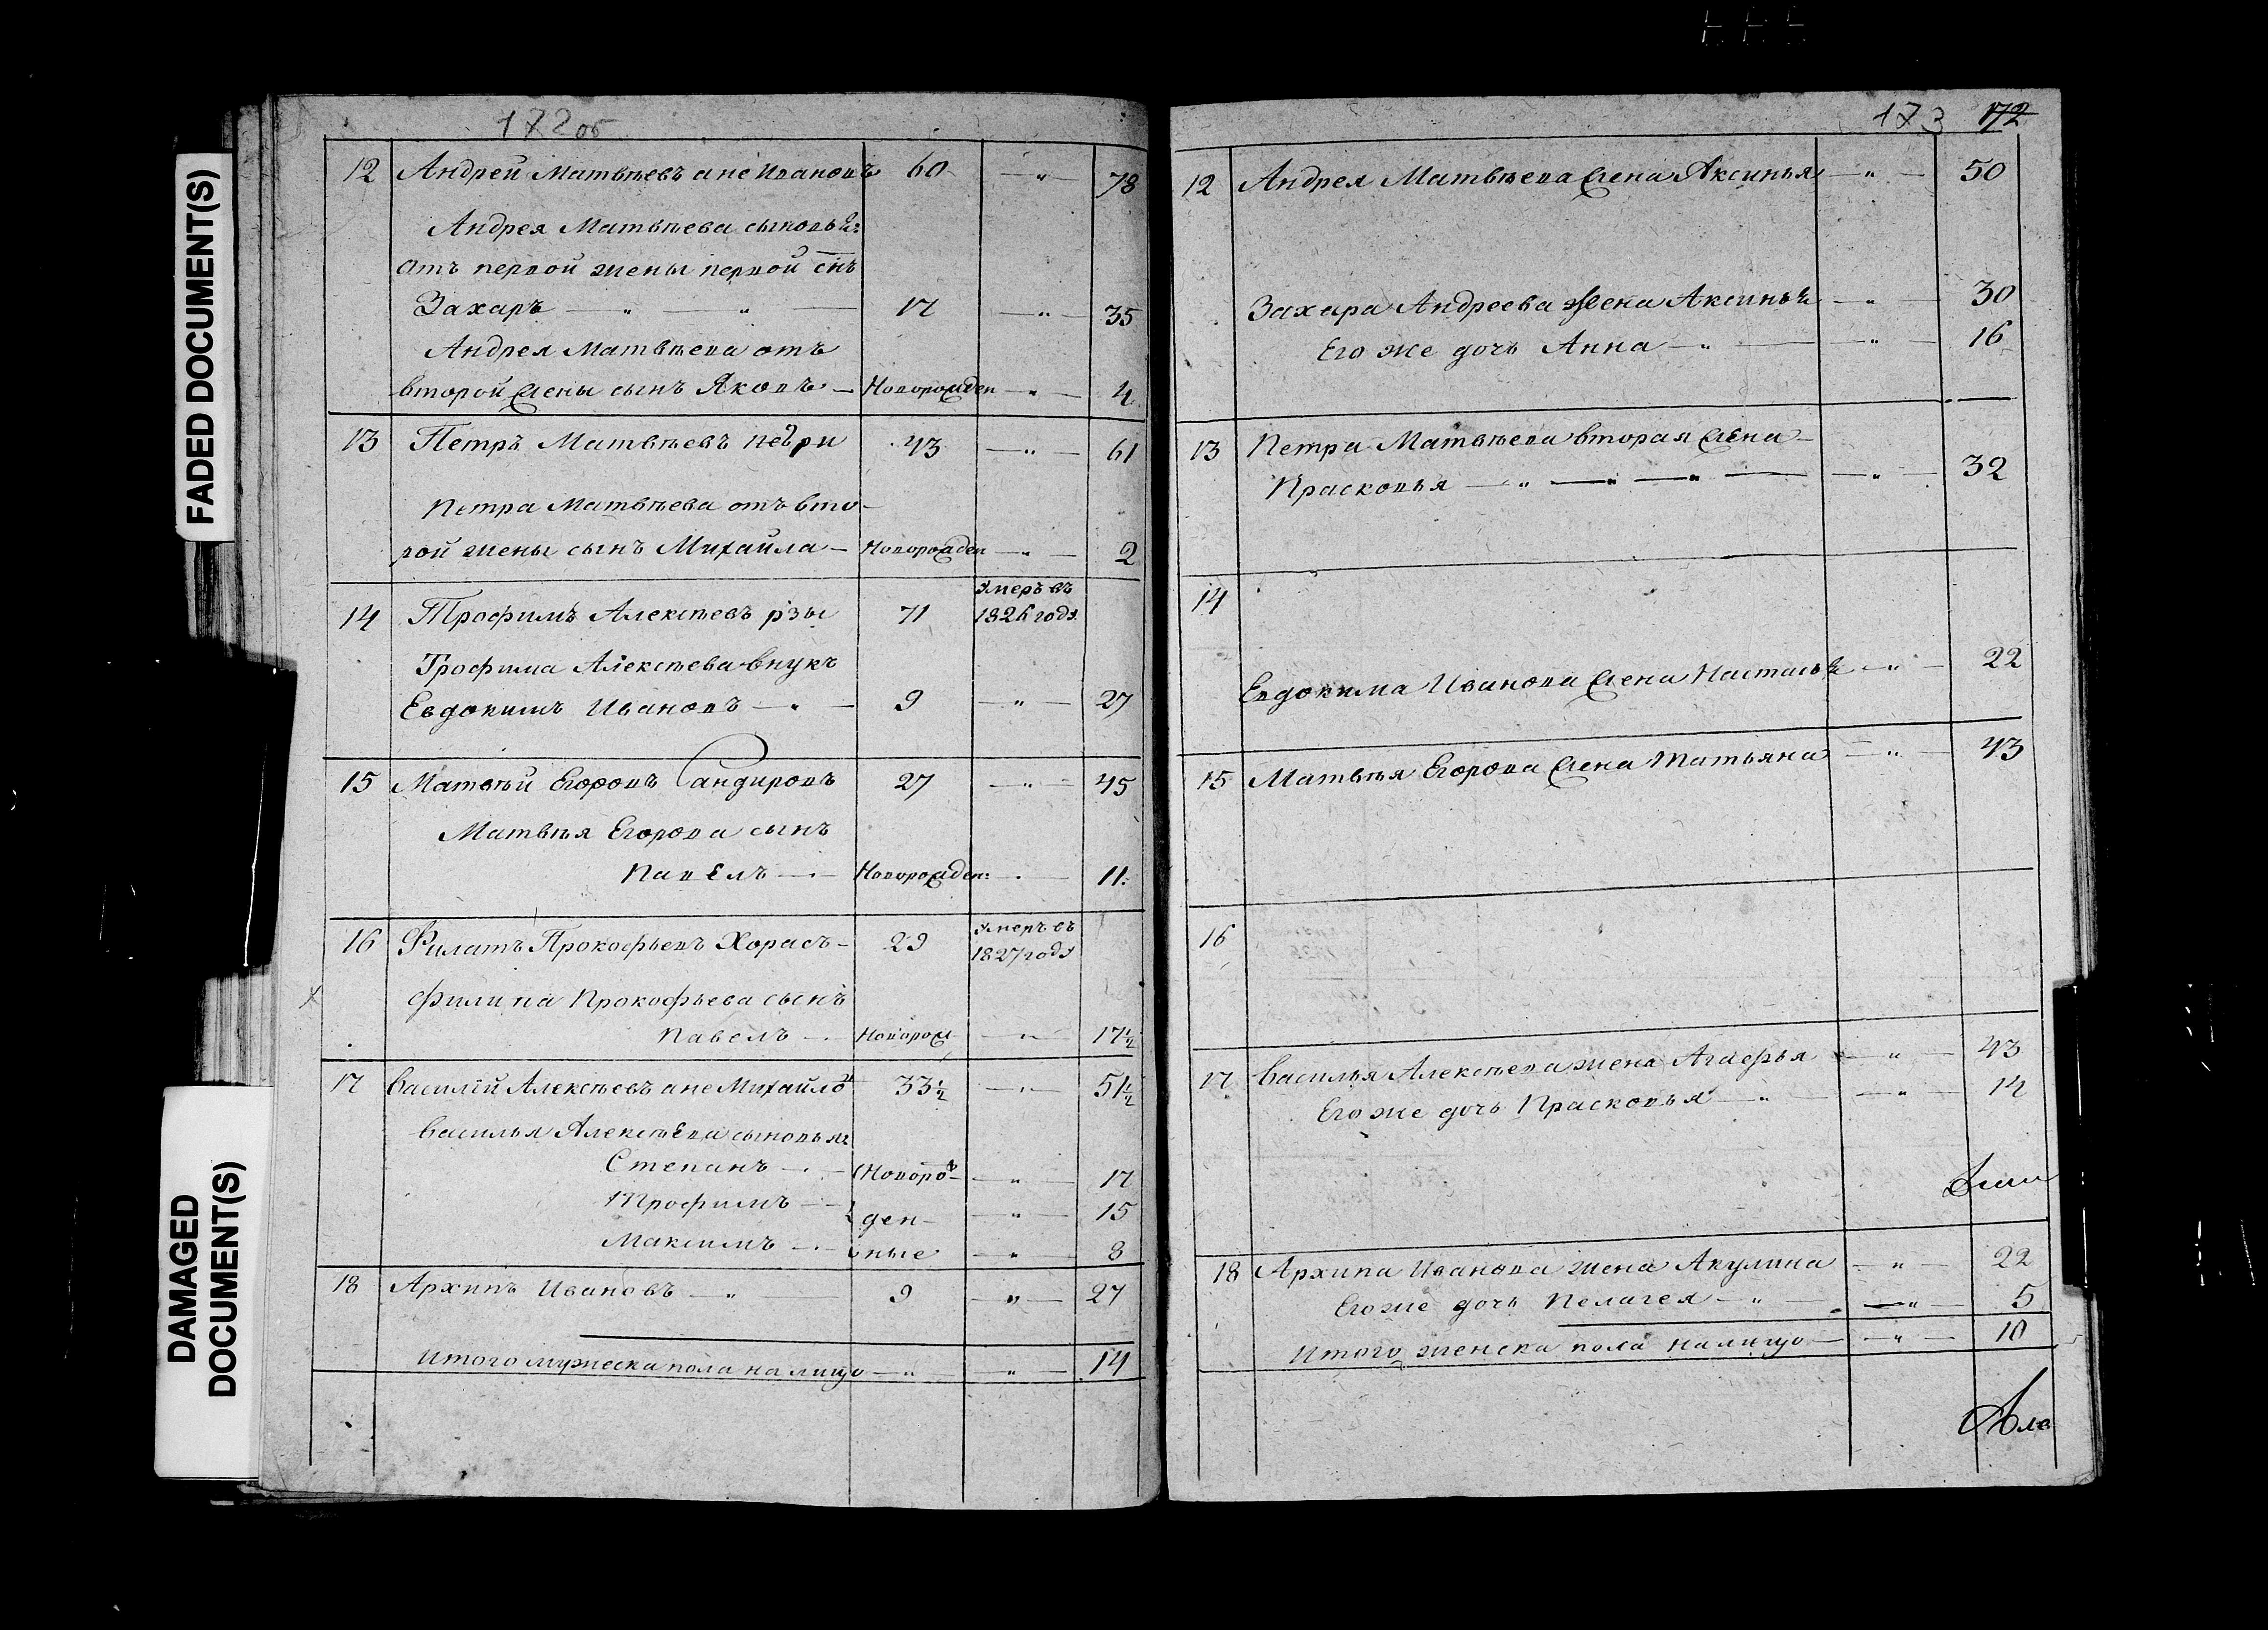 FADED DOCUMENT(S)
DAMAGED DOCUMENT(S)
172об
12 Андрей Матвѣевъ а не Ивановъ 60 — " — 78
Андрея Матвѣева сыновья:
отъ первой жены первой снъ
Захаръ — " — " — 17 — " — 35
Андрея Матвѣева отъ
второй жены сынъ Яковъ — Новорожден — " — 4
13 Петръ Матвѣевъ 43 — " — 61
Петра Матвѣева отъ вто-
рой жены сынъ Михайла — Новорожден — " — 2
14 Трофимъ Алексѣевъ 71 Умеръ въ
1826 году
Трофима Алексѣева внукъ
Евдокимъ Ивановъ — " — 9 — " — 27
15 Матвѣй Егоровъ Сандировъ 27 — " — 45
Матвѣя Егорова сынъ
Павелъ — Новорожден: — " — 11:
16 Филатъ Прокофьевъ Хорасъ- 29 Умеръ въ
1827 году
Филипа Прокофьева сынъ
Павелъ — Новорож — " — 17½
17 Василій Алексѣевъ а не Михайлов 33½ — " — 51½
Василья Алексѣева сыновья:
Степанъ — Новорож- — " — 17
Трофимъ — ден- — " — 15
Максимъ — ные — " — 8
18 Архипъ Ивановъ — " — 9 — " — 27
Итого мужеска пола на лицо — " — " — 14
173 172
12 Андрея Матвѣева жена Аксинья — " — 50
Захара Андреева жена Аксинья — " — 30
Его же дочь Анна — " — " — 16
13 Петра Матвѣева вторая жена
Прасковья — " — " — " — " — 32
14
Евдокима Иванова жена Настасья — " — 22
15 Матвѣя Егорова жена Татьяна — " — 43
16
17 Василья Алексѣева жена Агафья — " — 43
Его же дочь Прасковья — " — " — 12
18 Архипа Иванова жена Акулина — " — 22
Его же дочь Пелагея — " — " — 5
Итого женска пола на лицо — " — 10